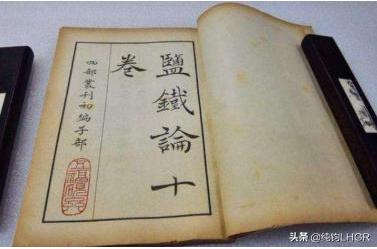 鹽鐵論十
卷
四部叢刊初編子部
头条 @纯钧LHGR